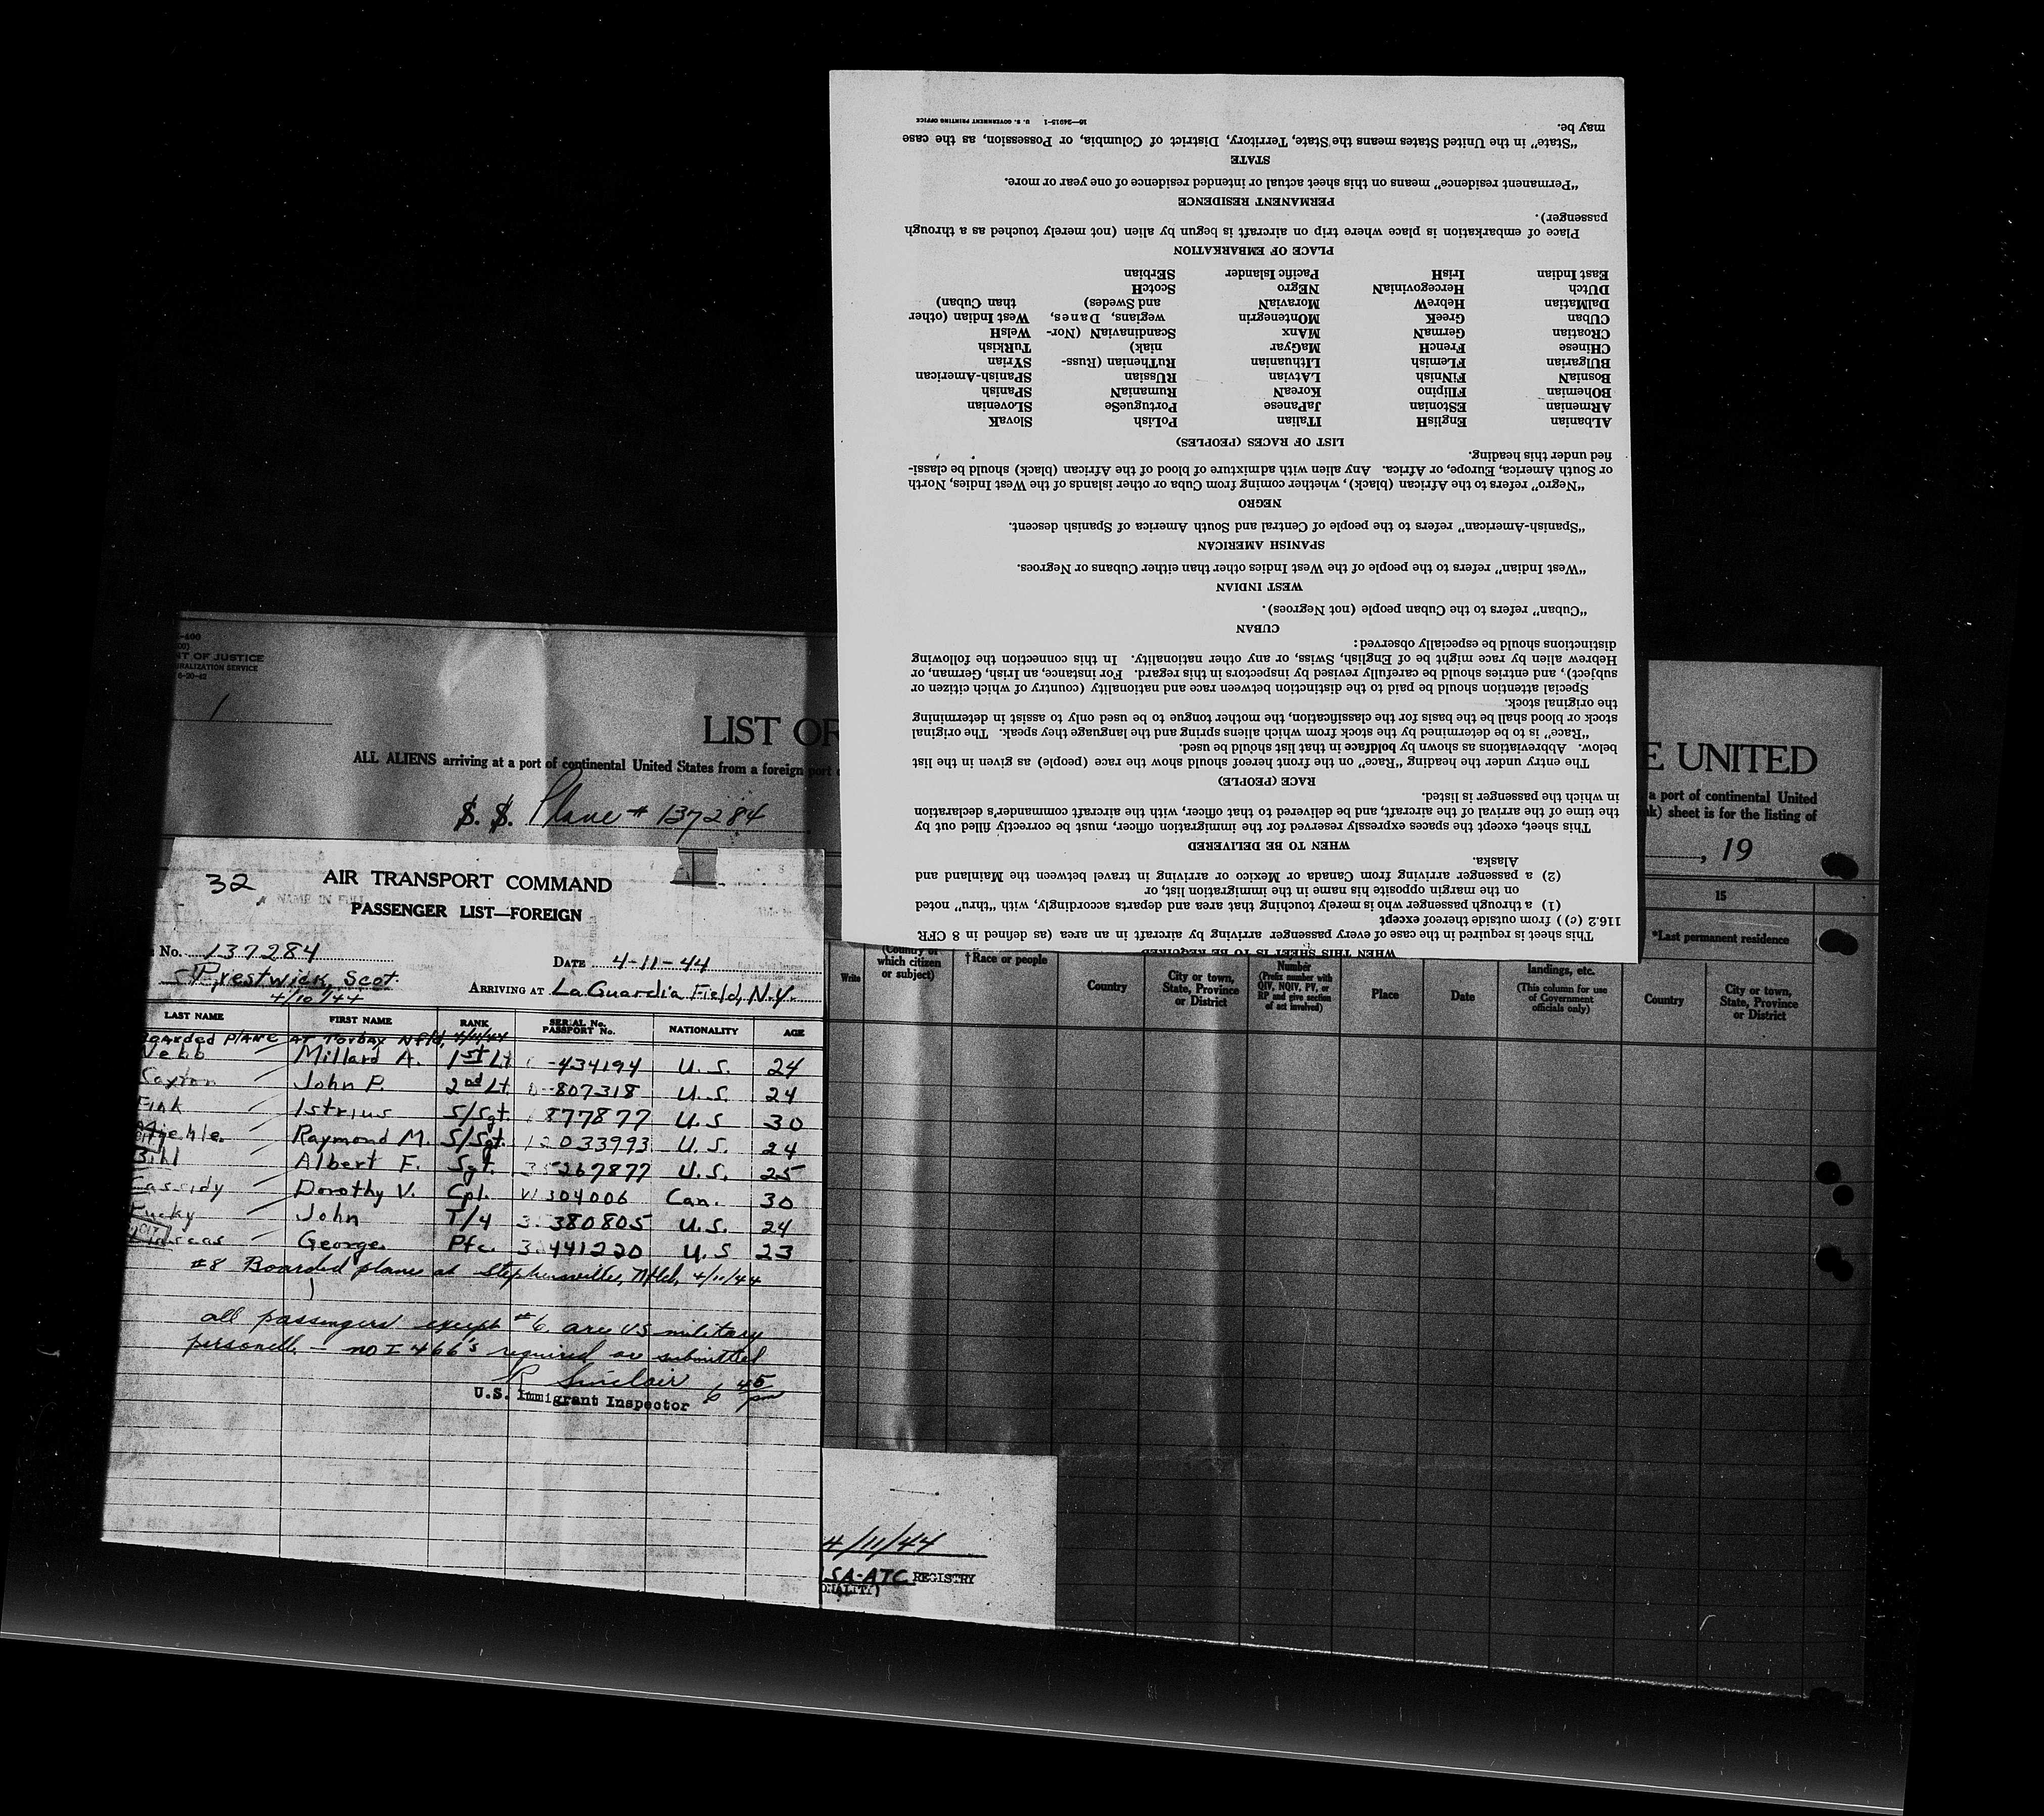 -400
NT OF JUSTICE
RALIZATION SERVICE
6-20-42
1
LIST OF
ALL ALIENS arriving at a port of continental United States from a foreign port
S. S. Plane # 137284
E UNITED
a port of continental United
sheet is for the listing of
, 19
15
*Last permanent residence
Write
(Country of which citizen or subject)
†Race or people
Country
City or town, State, Province or District
Number (Prefix number with QIV, NQIV, PV, or RP and give section of act involved)
Place
Date
landings, etc. (This column for use of Government officials only)
Country
City or town, State, Province or District
32
AIR TRANSPORT COMMAND
PASSENGER LIST—FOREIGN
No. 137284
DATE 4-11-44
Prestwick, Scot.
4/10/44
ARRIVING AT LaGuardia Field, N.Y.
LAST NAME FIRST NAME RANK SERIAL No. PASSPORT No. NATIONALITY AGE
Boarded PLANE AT Torbay Nfld, 4/11/44
Webb Millard A. 1st Lt -434194 U.S. 24
John P. 2nd Lt. -807318 U.S. 24
Fink Istrius S/Sgt. 877877 U.S 30
Raymond M. S/Sgt. 12033993 U.S. 24
Bihl Albert F. Sgt. 35267877 U.S. 25
Cassidy Dorothy V. Cpl. W304006 Can. 30
John T/4 3 380805 U.S. 24
George Pfc. 3 441220 U.S 23
#8 Boarded plane at Stephenville, Nfld, 4/11/44
all passengers except #6 are US military
personell - no I 466's required or submitted
R Sinclair 6 45 pm
U.S. Immigrant Inspector
4/11/44
USA-ATC REGISTRY
ONALITY)
WHEN THIS SHEET IS TO BE REQUIRED
This sheet is required in the case of every passenger arriving by aircraft in an area (as defined in 8 CFR
116.2 (c)) from outside thereof except
(1) a through passenger who is merely touching that area and departs accordingly, with "thru" noted
on the margin opposite his name in the immigration list, or
(2) a passenger arriving from Canada or Mexico or arriving in travel between the Mainland and
Alaska.
WHEN TO BE DELIVERED
This sheet, except the spaces expressly reserved for the immigration officer, must be correctly filled out by
the time of the arrival of the aircraft, and be delivered to that officer, with the aircraft commander's declaration
in which the passenger is listed.
RACE (PEOPLE)
The entry under the heading "Race" on the front hereof should show the race (people) as given in the list
below. Abbreviations as shown by boldface in that list should be used.
"Race" is to be determined by the stock from which aliens spring and the language they speak. The original
stock or blood shall be the basis for the classification, the mother tongue to be used only to assist in determining
the original stock.
Special attention should be paid to the distinction between race and nationality (country of which citizen or
subject), and entries should be carefully revised by inspectors in this regard. For instance, an Irish, German, or
Hebrew alien by race might be of English, Swiss, or any other nationality. In this connection the following
distinctions should be especially observed:
CUBAN
"Cuban" refers to the Cuban people (not Negroes).
WEST INDIAN
"West Indian" refers to the people of the West Indies other than either Cubans or Negroes.
SPANISH AMERICAN
"Spanish-American" refers to the people of Central and South America of Spanish descent.
NEGRO
"Negro" refers to the African (black), whether coming from Cuba or other islands of the West Indies, North
or South America, Europe, or Africa. Any alien with admixture of blood of the African (black) should be classi-
fied under this heading.
LIST OF RACES (PEOPLES)
ALbanian EnglisH ITalian PoLish SlovaK
ARmenian EStonian JaPanese PortugueSe SLovenian
BOhemian FIlipino KoreaN RumaniaN SPanish
BosniaN FiNnish LAtvian RUssian SPanish-American
BUlgarian FLemish LIthuanian RuThenian (Russ- SYrian
CHinese FrencH MaGyar niak) TuRkish
CRoatian GermaN MAnx ScandinaviaN (Nor- WelsH
CUban GreeK MOntenegrin wegians, Danes, West Indian (other
DalMatian HebreW MoraviaN and Swedes) than Cuban)
DUtch HercegoviniaN NEgro ScotcH
East Indian IrisH Pacific Islander SErbian
PLACE OF EMBARKATION
Place of embarkation is place where trip on aircraft is begun by alien (not merely touched as a through
passenger).
PERMANENT RESIDENCE
"Permanent residence" means on this sheet actual or intended residence of one year or more.
STATE
"State" in the United States means the State, Territory, District of Columbia, or Possession, as the case
may be.
16—24915-1 U. S. GOVERNMENT PRINTING OFFICE